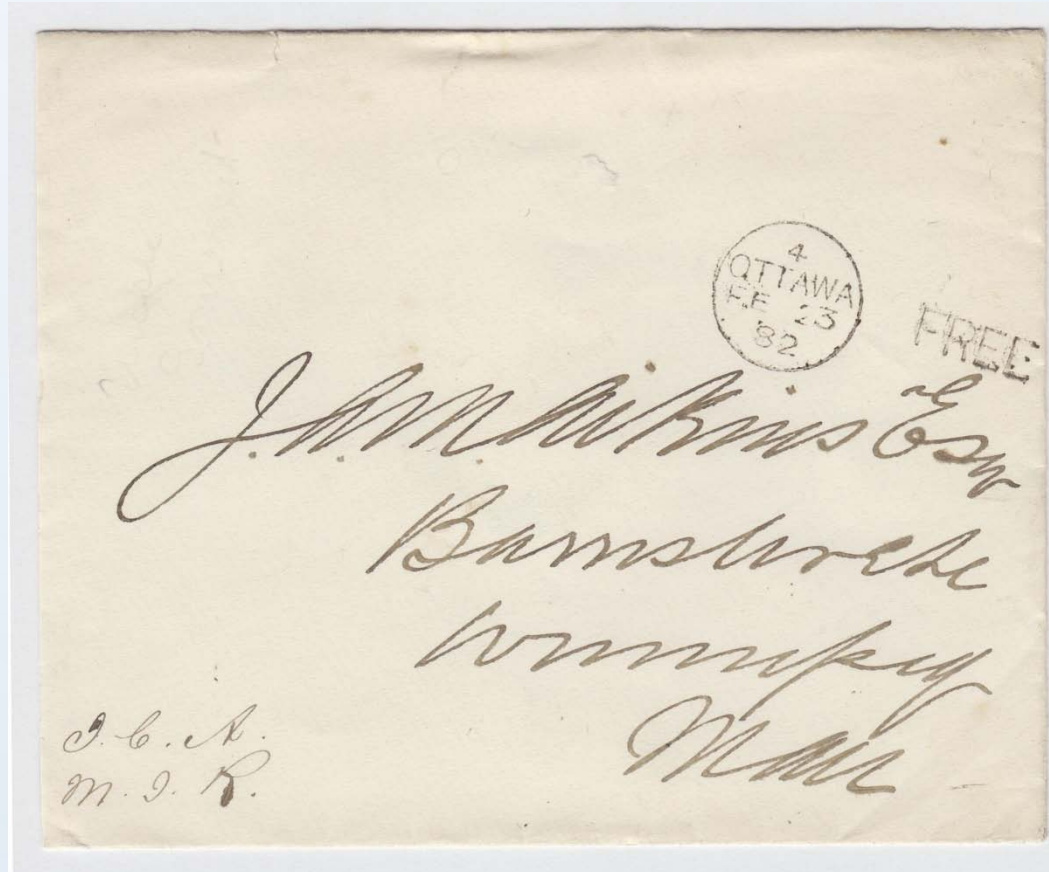 4
OTTAWA
FE 23
82
FREE
J. A. M. Aikins Esq
Winnipeg
Man
J. C. A.
M. I. R.